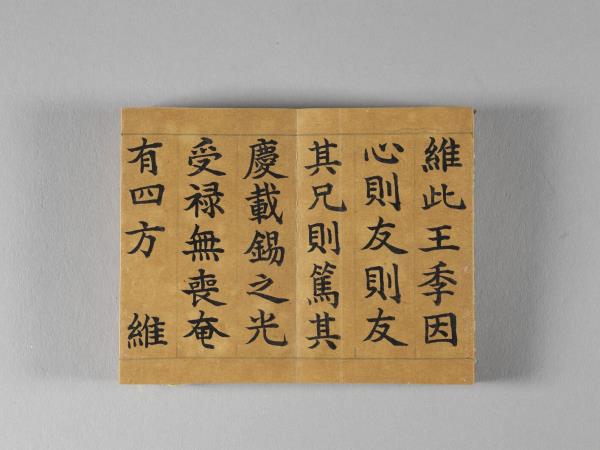 維此王季因
心則友則友
其兄則篤其
慶載錫之光
受禄無喪奄
有四方　維